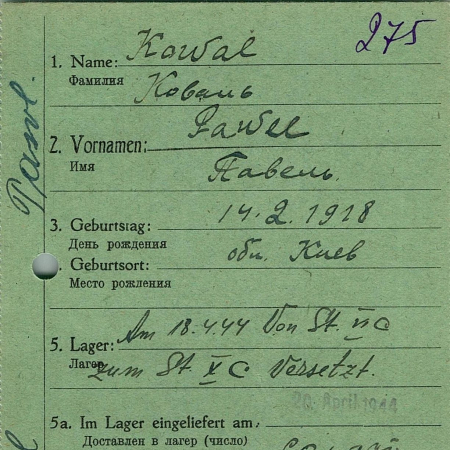 275
Kowal
1. Name:
Фамилия
Коваль
Pawel
2. Vornamen:
Имя
Павель.
14.2.1918
3. Geburtstag:
День рождения
обл. Киев
. Geburtsort:
Место рождения
Am 18.4.44 Von St. II C
5. Lager:
Лагерь
zum St X C Versetzt.
5a. Im Lager eingeliefert am:
Доставлен в лагерь (число)